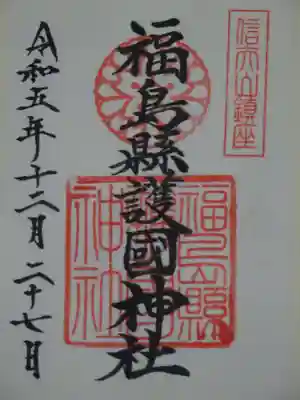 信夫山鎮座
福島縣護國神社
福島縣護國神社
令和五年十二月二十七日